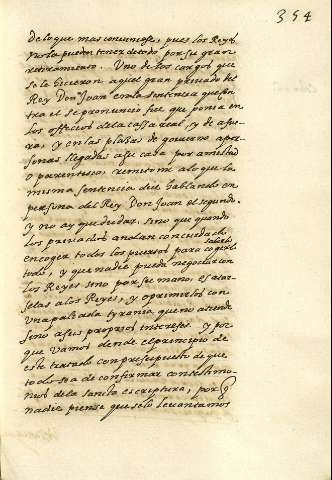 354
de lo que mas conuiniese, pues los Reyes
no la pueden tener de todo por su gran
retiramiento. Uno de los cargos que
se le hicieron a aquel gran priuado del
Rey Don Juan en la sentencia que con
tra el se pronuncio fue que ponia en
los officios de la cassa real, y de afue
ra, y en las plazas de gouierno a per
sonas llegadas a su casa por amistad
o parentesco remitome a lo que la
misma sentencia dice hablando en
persona del Rey Don Juan el segundo.
y no ay que dudar, sino que quando
los priuados andan con cuidado
encoger todos los puertos para cogerlo
todo, y que nadie pueda negociar con
los Reyes sino por su mano, es atar
selas a los Reyes, y oprimirlos con
una paliada tyrania que no atiende
sino a sus proprios intereses. y por
que vamos dende el principio de
este tratado con presupuesto de que
todo se a de confirmar con testimo
nios de la santa escriptura, por q
nadie piense que solo leuantamos